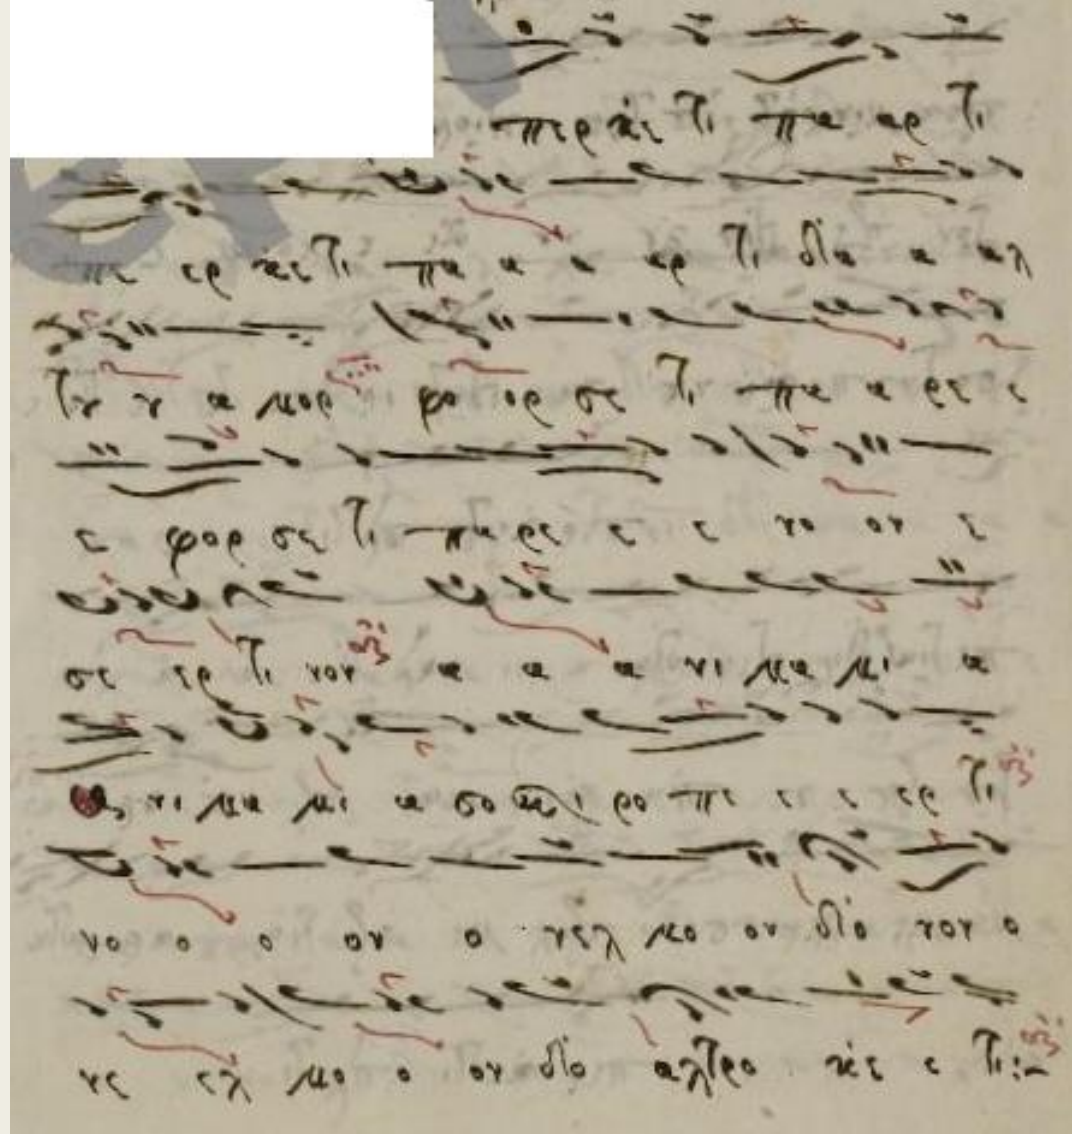 περ κε τι πα αρ τι
πε ερ κε τι πα α α αρ τι δα α αλ
τυ υ α μορ φο ορ σε τι πα α ρε ε
ε φορ σε τι πα ρε ε ε νο ον ε
σε ερ τι νον α α α νι μα μι α
νι μα μι α σο ρο πε ε ε ερ τι
νο ο ο ον ο νελ μο ον δο νον ο
νε ελ μο ο ον δο αλτρο κε ε τι :~